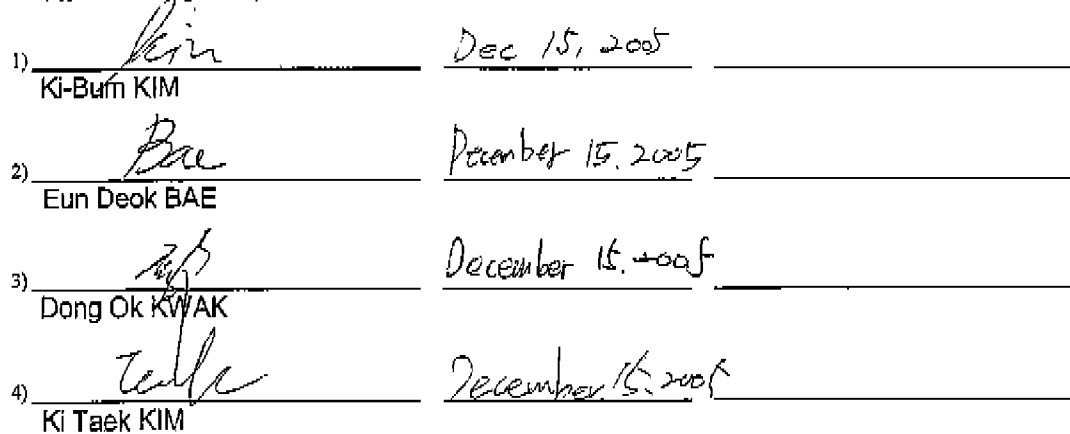 1) Kim Dec 15, 2005
Ki-Bum KIM
2) Bae December 15. 2005
Eun Deok BAE
3) December 15. 2005
Dong Ok KWAK
4) December 15. 2005
Ki Taek KIM